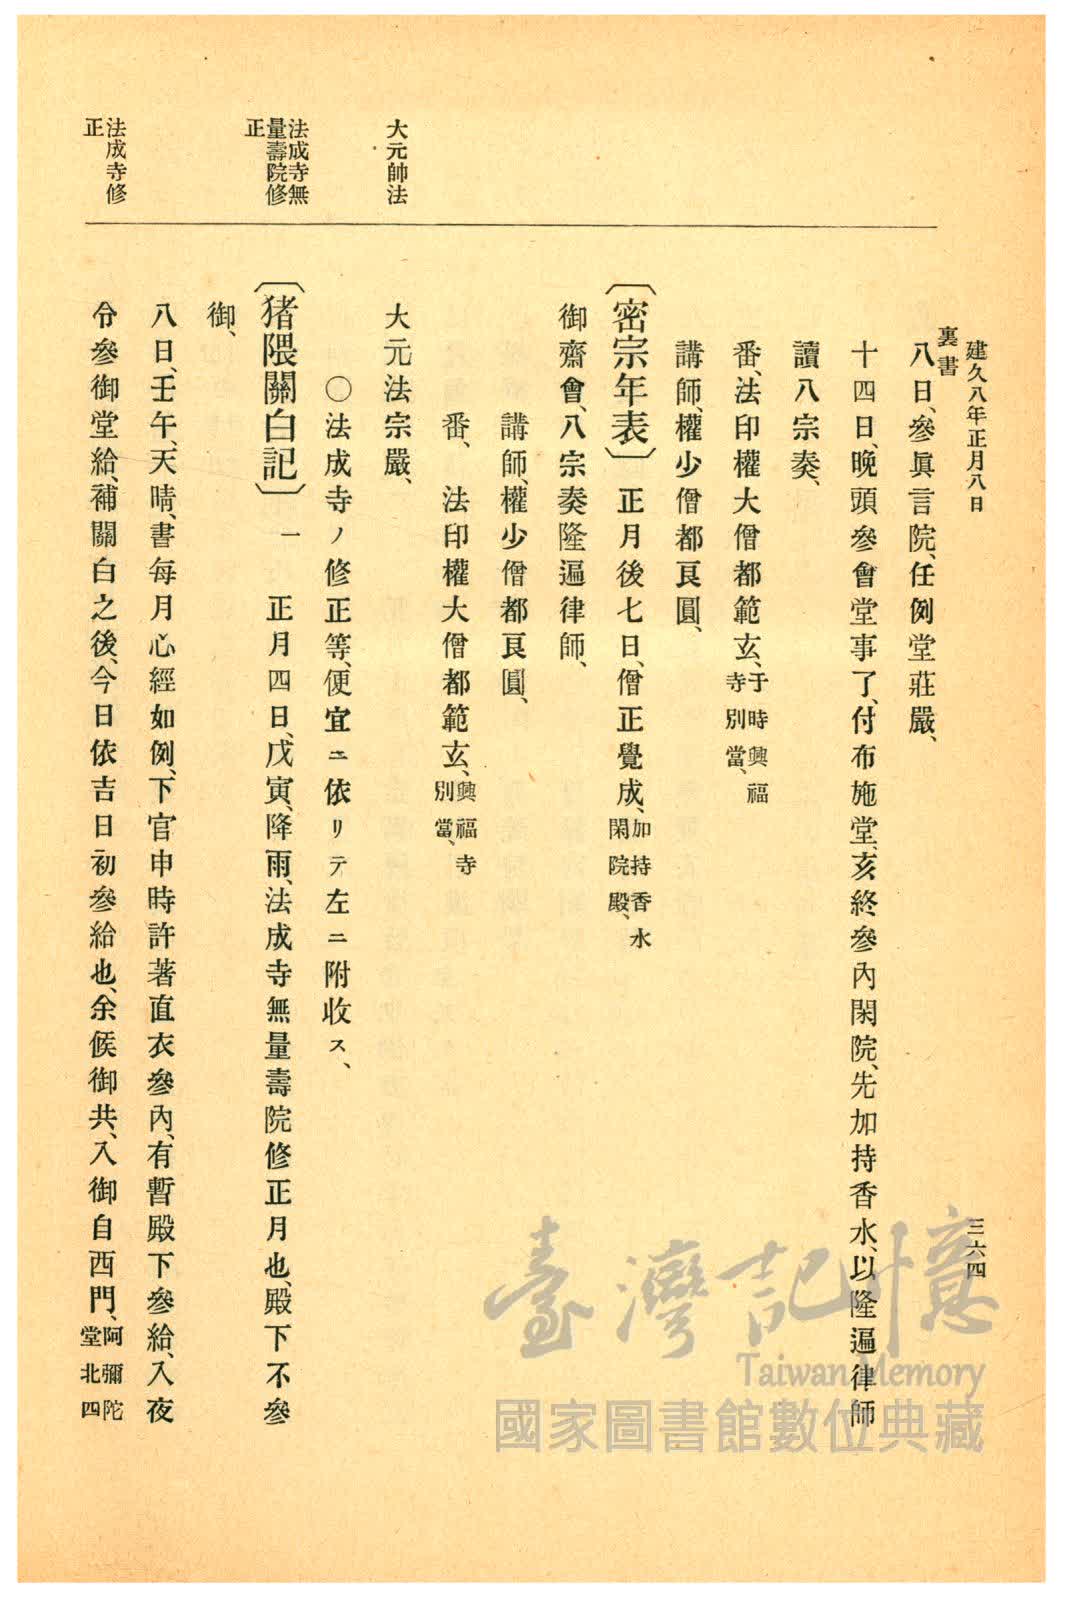 建久八年正月八日
三六四
裏書
八日、參眞言院、任例堂莊嚴、
十四日、晩頭參會堂事了、付布施堂、亥終參內閑院、先加持香水、以隆遍律師
讀八宗奏、
番、法印權大僧都範玄、于時興福寺別當、
講師、權少僧都良圓、
〔密宗年表〕正月後七日、僧正覺成、加持香水閑院殿、
御齋會、八宗奏隆遍律師、
講師、權少僧都良圓、
番、法印權大僧都範玄、興福寺別當、
大元法宗嚴、
〇法成寺ノ修正等、便宜ニ依リテ左ニ附收ス、
〔猪隈關白記〕一 正月四日、戊寅、降雨、法成寺無量壽院修正月也、殿下不參
御、
八日、壬午、天晴、書每月心經如例、下官申時許著直衣參內、有暫殿下參給、入夜
令參御堂給、補關白之後、今日依吉日初參給也、余候御共、入御自西門、阿彌陀堂北四
大元帥法
法成寺無
量壽院修
正
法成寺修
正
臺灣記憶
Taiwan Memory
國家圖書館數位典藏